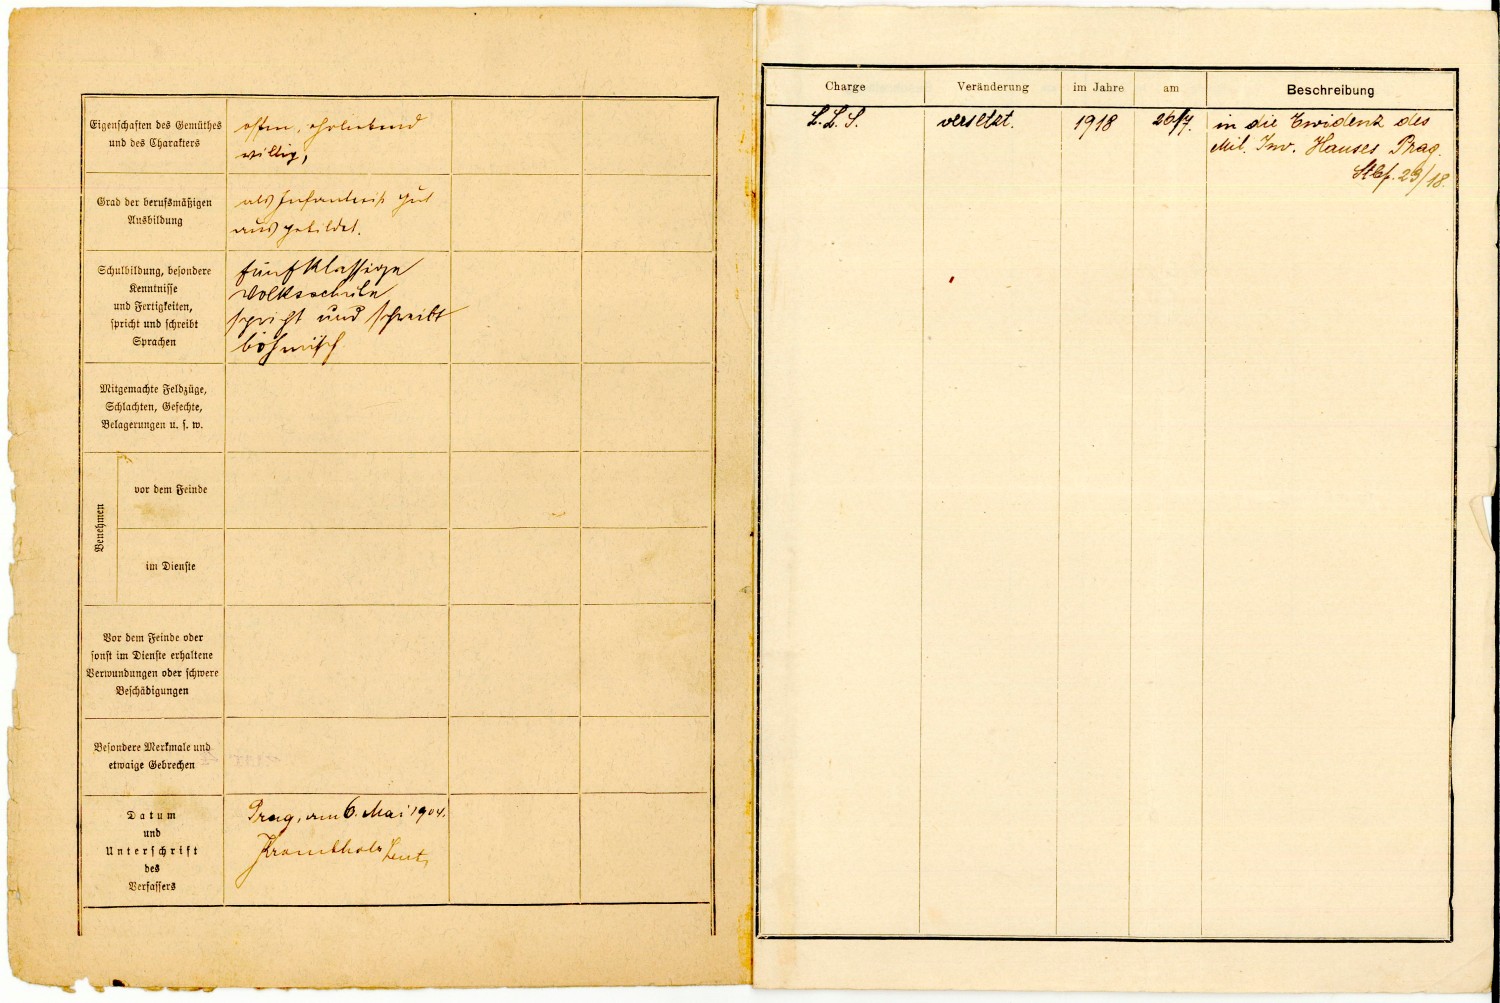 Eigenschaften des Gemüthes
und des Charakters
offen, ehrliebend
willig,
Grad der berufsmäßigen
Ausbildung
als Infanterist gut
ausgebildet.
Schulbildung, besondere
Kenntnisse
und Fertigkeiten,
spricht und schreibt
Sprachen
fünfklassige
Volksschule
spricht und schreibt
böhmisch
Mitgemachte Feldzüge,
Schlachten, Gefechte,
Belagerungen u. s. w.
Benehmen
vor dem Feinde
im Dienste
Vor dem Feinde oder
sonst im Dienste erhaltene
Verwundungen oder schwere
Beschädigungen
Besondere Merkmale und
etwaige Gebrechen
Datum
und
Unterschrift
des
Verfassers
Prag, am 6. Mai 1904.
Krombholz Leut,
Charge Veränderung im Jahre am Beschreibung
L.L.S. versetzt. 1918 26/7. in die Evidenz des
Mil. Inv. Hauses Prag.
Stbf. 29/18.